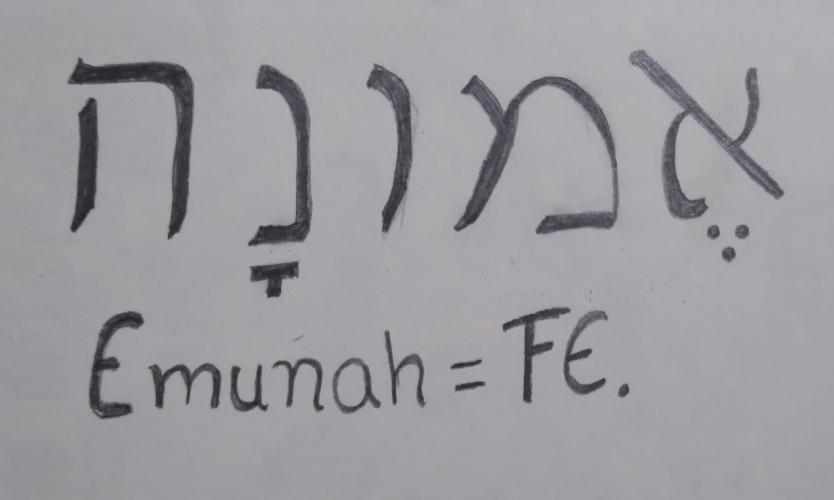 אֶמונָה
Emunah = FE.